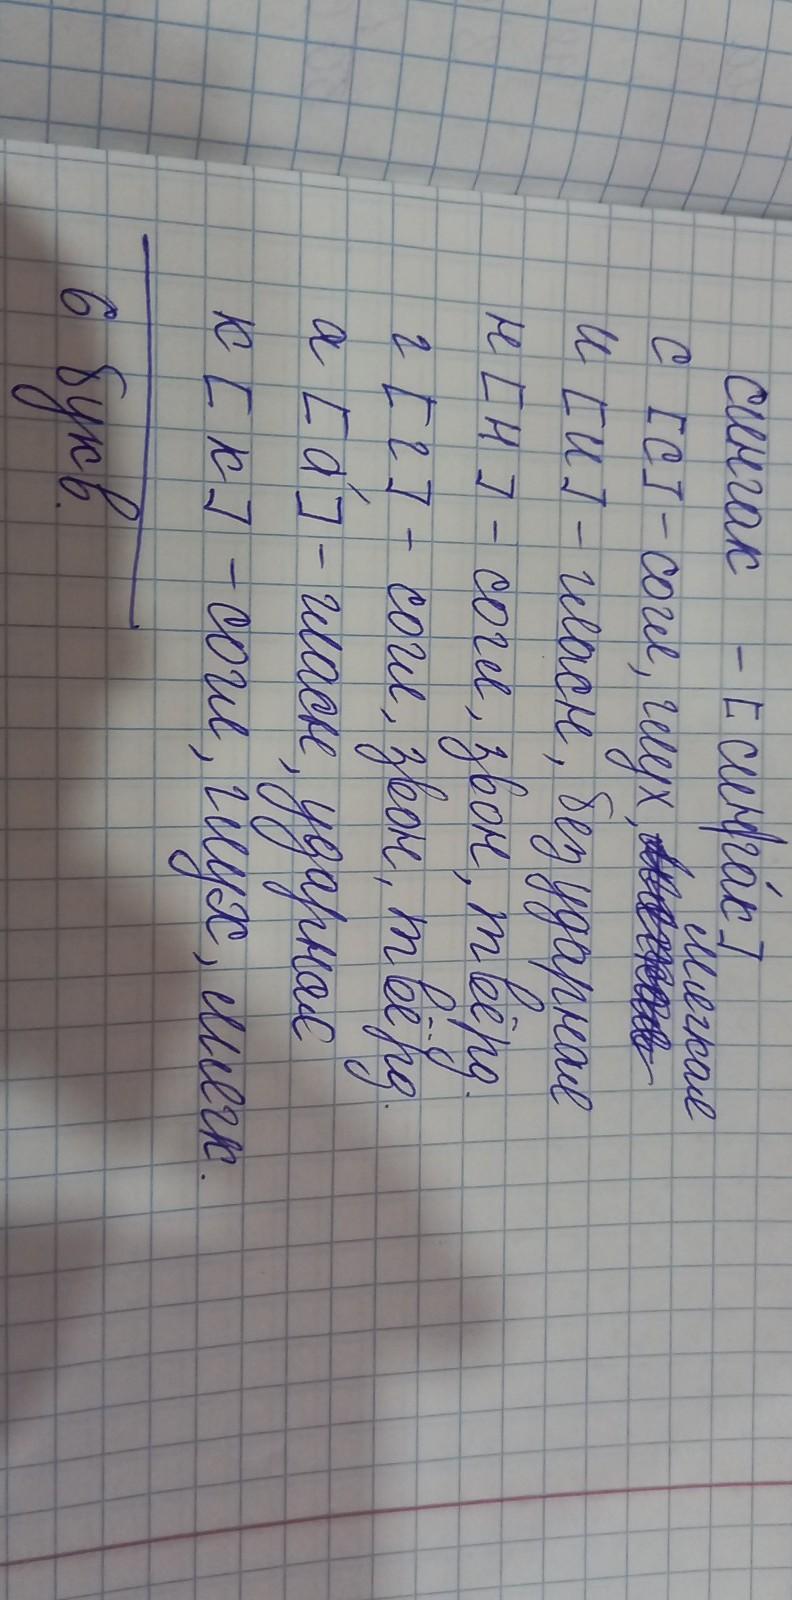 сингак - [сингáк]
мягкая
с [с] - согл, глух,
и [и] - гласн, безударная
н [н] - согл, звон, твёрд.
г [г] - согл, звон, твёрд.
а [á] - гласн, ударная
к [к] - согл, глух, мягк.
6 букв.